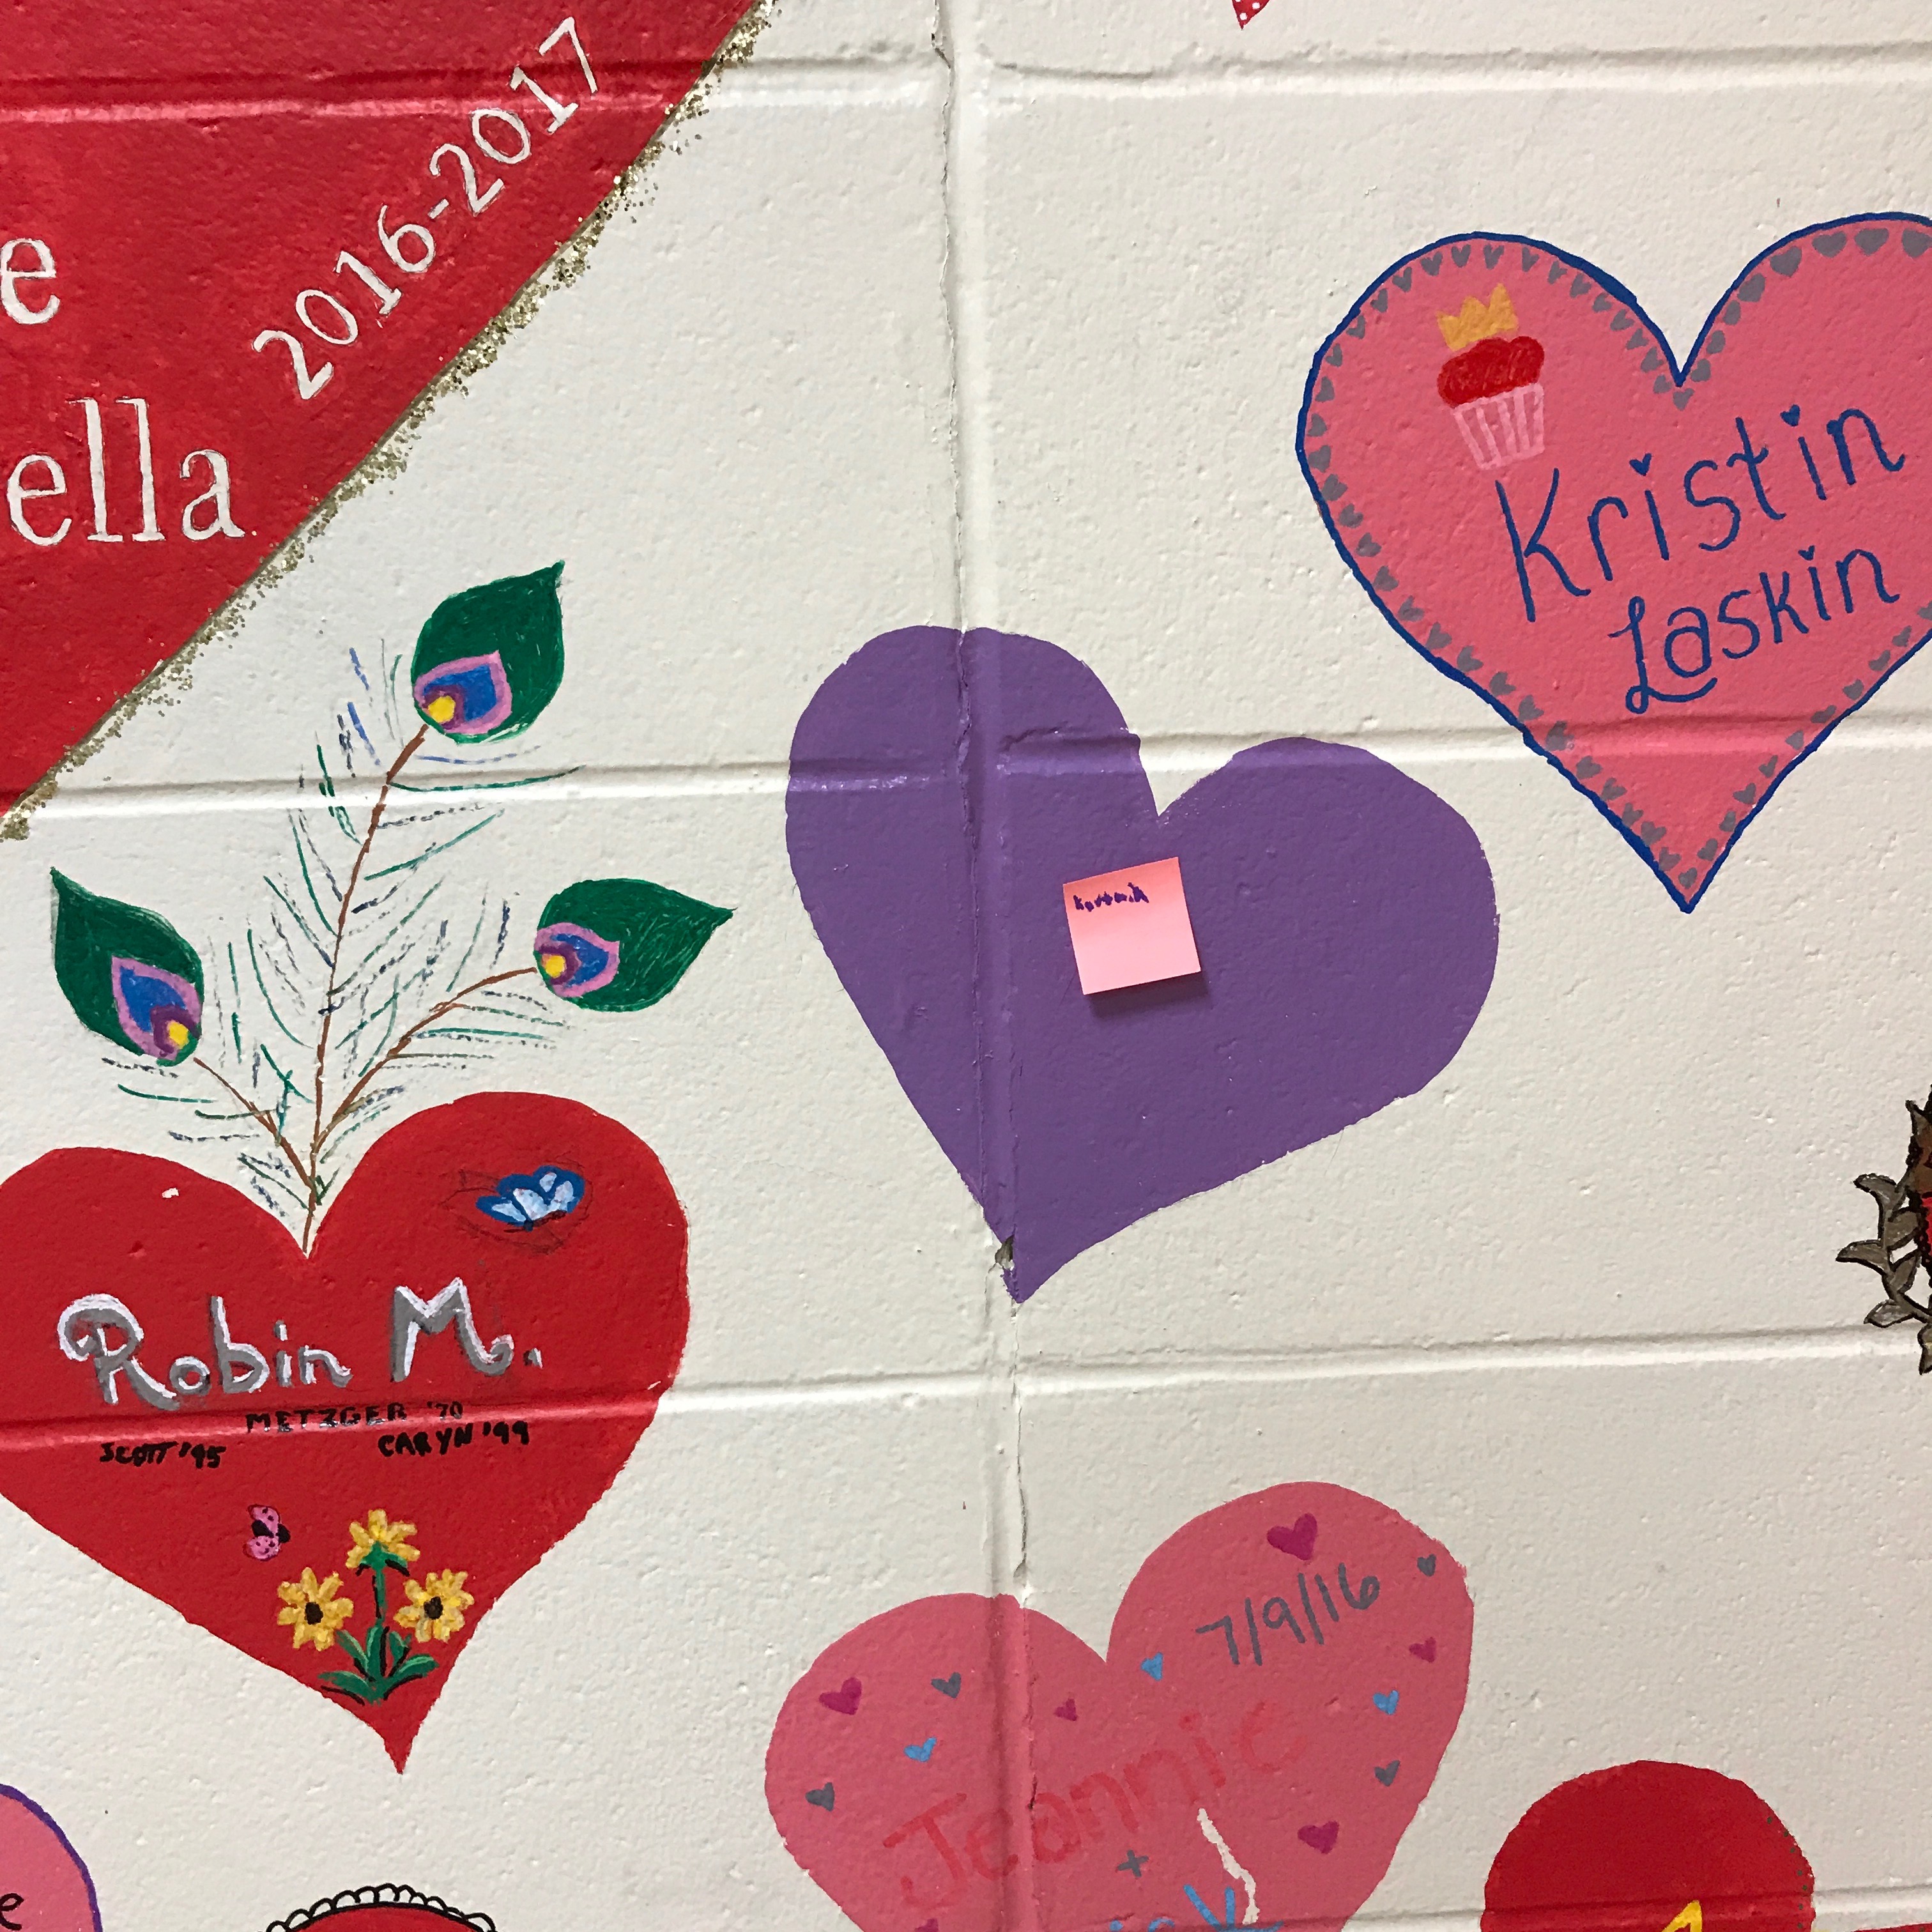 2016-2017
e
ella
Kristin
Laskin
Robin M.
METZGER '70
SCOTT '95 CARYN '99
7/9/16
Jeannie
+
e